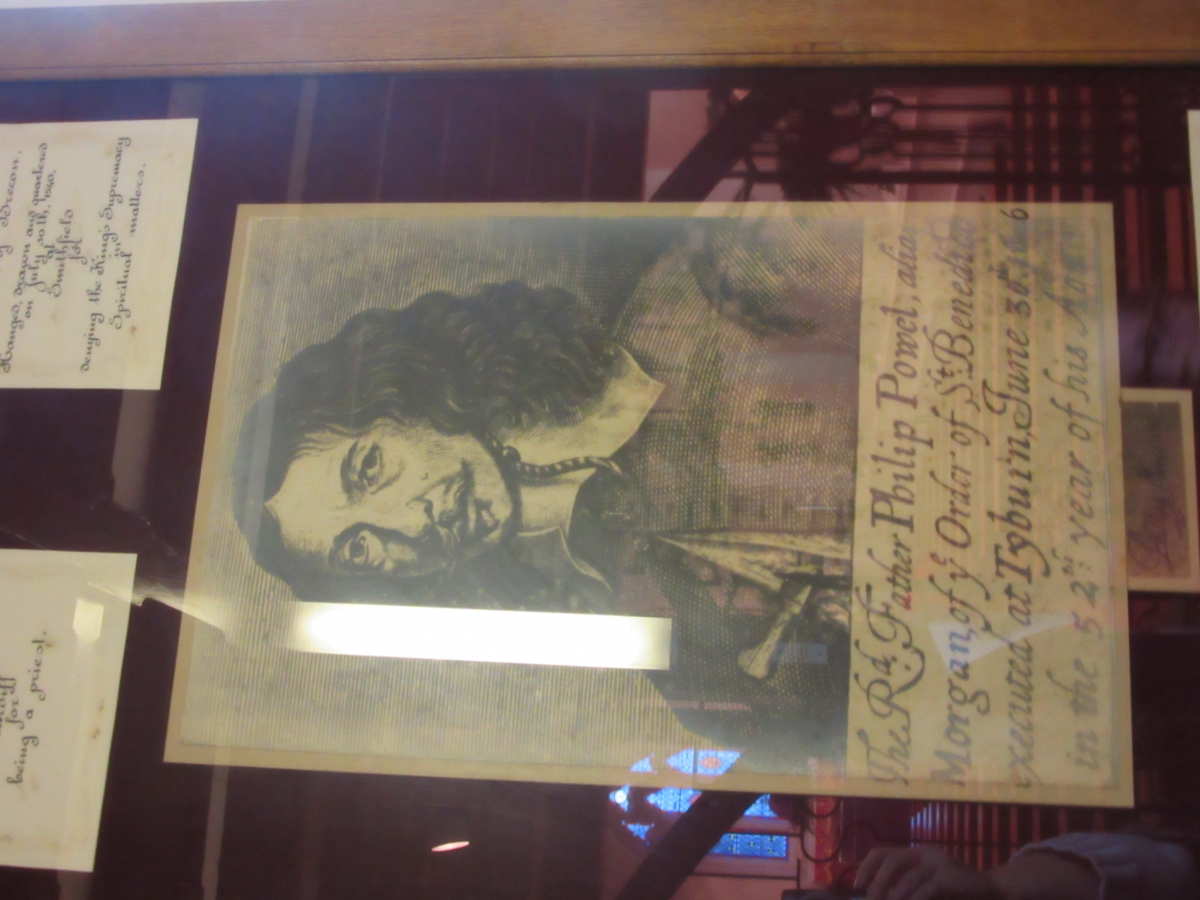 The Rd. Father Philip Powel, alias
Morgan, of ye Order of St. Benedict
executed at Tyburn, June 30.
in the 52nd: year of his
Brecon.
Hanged, drawn and quartered
on July 30th, 1540.
at
Smithfield
for
denying the King's Supremacy
in
Spiritual matters.
being for
a priest.